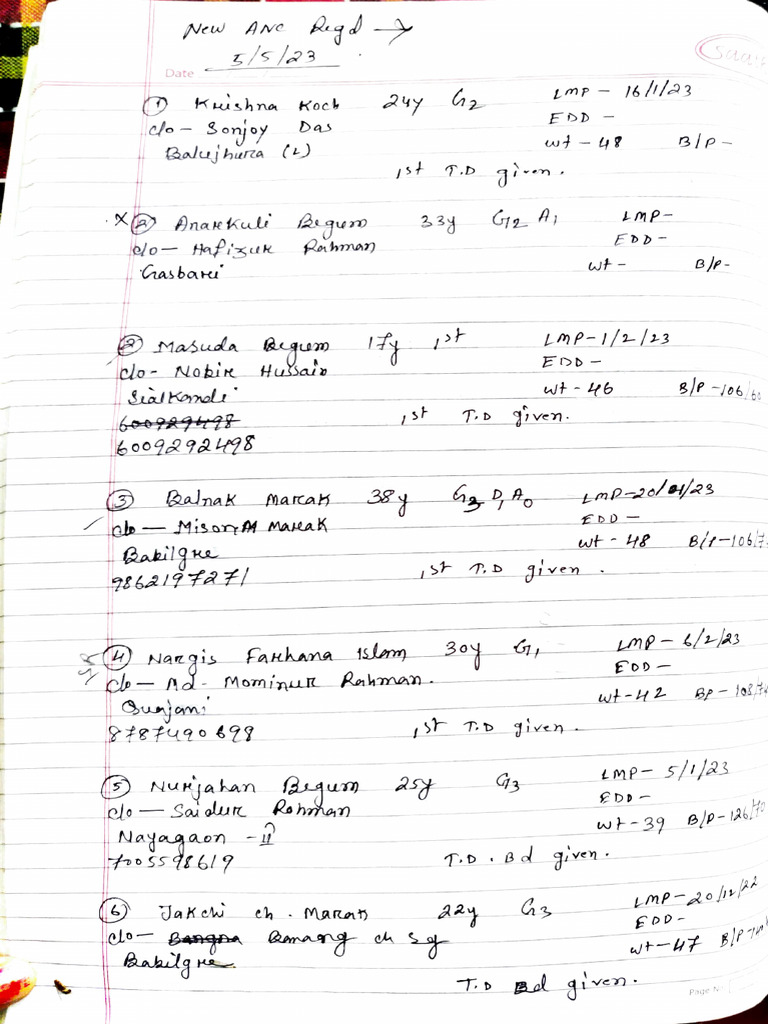 New ANC Regd →
Date 5/5/23
① Krishna Koch 24y G2 LMP - 16/1/23
c/o - Sonjoy Das EDD -
Balujhura (L) wt - 48 B/P -
1st T.D given.
x ② Anarkuli Begum 33y G2 A1 LMP -
c/o - Hafizur Rahman EDD -
Gasbari wt - B/P -
② Masuda Begum 17y 1st LMP - 1/2/23
c/o - Nobir Hussain EDD -
Sialkandi wt - 46 B/P - 106/60
600929498 1st T.D given.
6009292498
③ Balnak Marak 38y G3 A0 LMP - 20/1/23
c/o - Marak EDD -
Babilgre wt - 48 B/P - 106/7
9862197271 1st T.D given.
④ Nargis Farhana Islam 30y G1 LMP - 6/2/23
c/o - Ad. Mominur Rahman. EDD -
Gujani wt - 42 BP - 108/74
8787490698 1st T.D given.
⑤ Nurjahan Begum 25y G3 LMP - 5/1/23
c/o - Saidur Rohman EDD -
Nayagaon - II wt - 39 B/P - 126/70
7005598619 T.D. Bd given.
⑥ Jakchi ch. Marak 22y G3 LMP - 20/12/22
c/o - Bangna Banang ch Sg EDD -
Babilgre. wt - 47 B/P -
T.D Bd given.
Page No